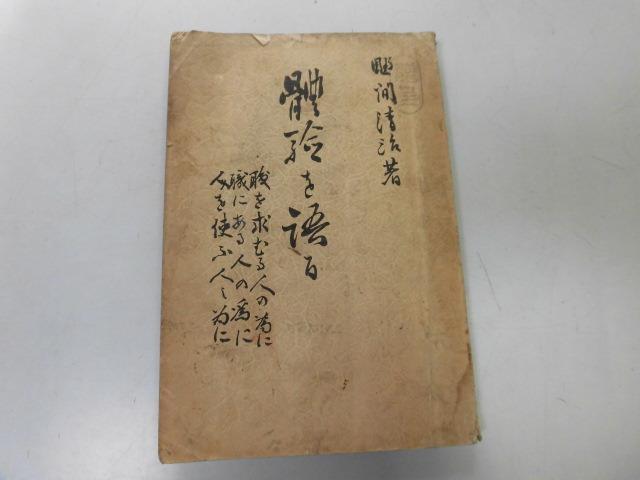 野間清治著
體驗を語る
職を求むる人の為に
職にある人の為に
人を使ふ人の為に